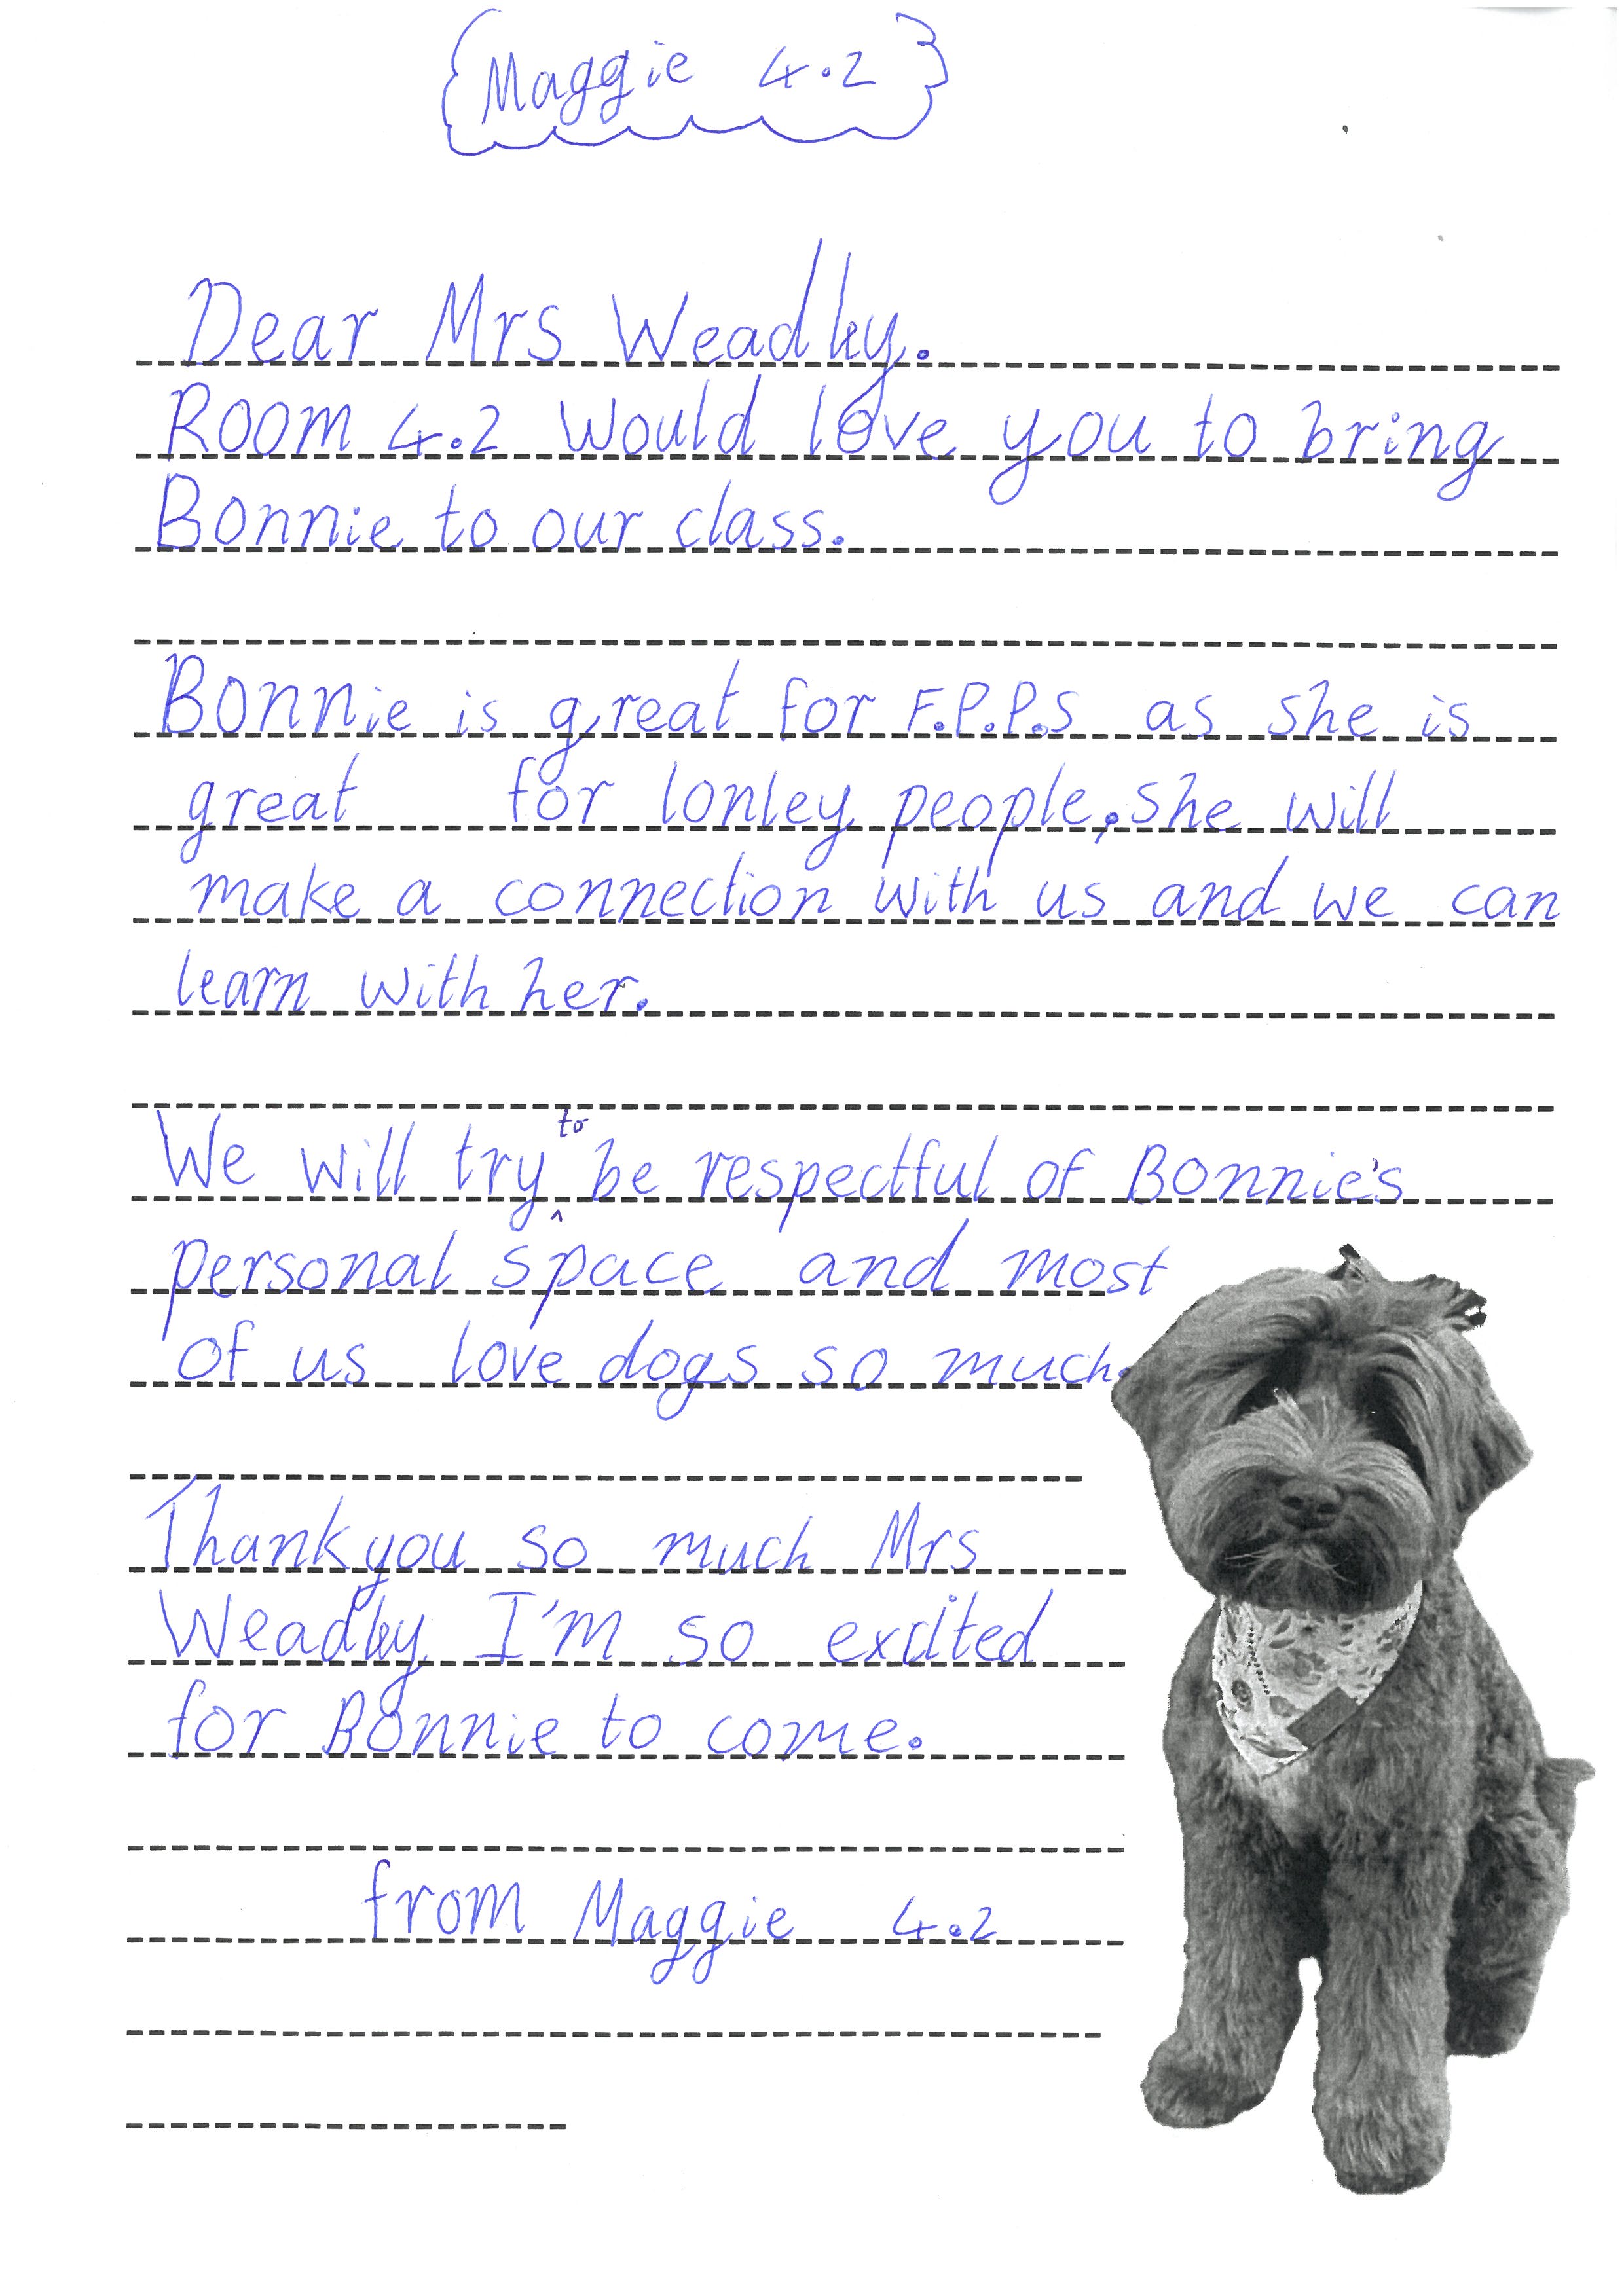 Maggie 4.2
Dear Mrs Weadley.
Room 4.2 Would love you to bring
Bonnie to our class.
Bonnie is great for F.P.P.S as she is
great for lonley people, she will
make a connection with us and we can
learn with her.
We will try to be respectful of Bonnie's
personal space and most
of us love dogs so much.
Thank you so much Mrs
Weadley I'm so excited
for Bonnie to come.
from Maggie 4.2